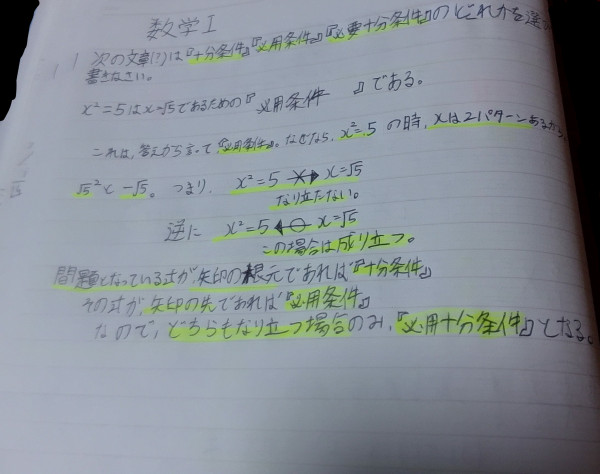 数学I
1 次の文章(?)は『十分条件』『必用条件』『必要十分条件』のどれかを選
書きなさい。
x²=5はx=√5であるための『 必用条件 』である。
これは、答えから言って『必用条件』。なぜなら、x²=5 の時、xは2パターンあるから。
√5²と-√5。つまり、x²=5 ✕→ x=√5
なり立たない。
逆に x²=5 ←○ x=√5
この場合は成り立つ。
問題となっている式が矢印の根元であれば『十分条件』
その式が、矢印の先であれば『必用条件』
なので、どちらもなり立つ場合のみ、『必用十分条件』となる。